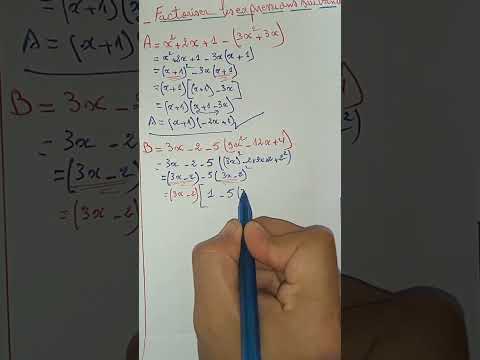 _ Factoriser les expressions suivan
A = x² + 2x + 1 - (3x² + 3x)
= x² + 2x + 1 - 3x(x + 1)
= (x + 1)² - 3x(x + 1)
= (x + 1)[(x + 1) - 3x]
= (x + 1)(x + 1 - 3x)
A = (x + 1)(-2x + 1)
B = 3x - 2 - 5(9x² - 12x + 4)
= 3x - 2 - 5((3x)² - 2×3x×2 + 2²)
= (3x - 2) - 5(3x - 2)²
= (3x - 2)[1 - 5(